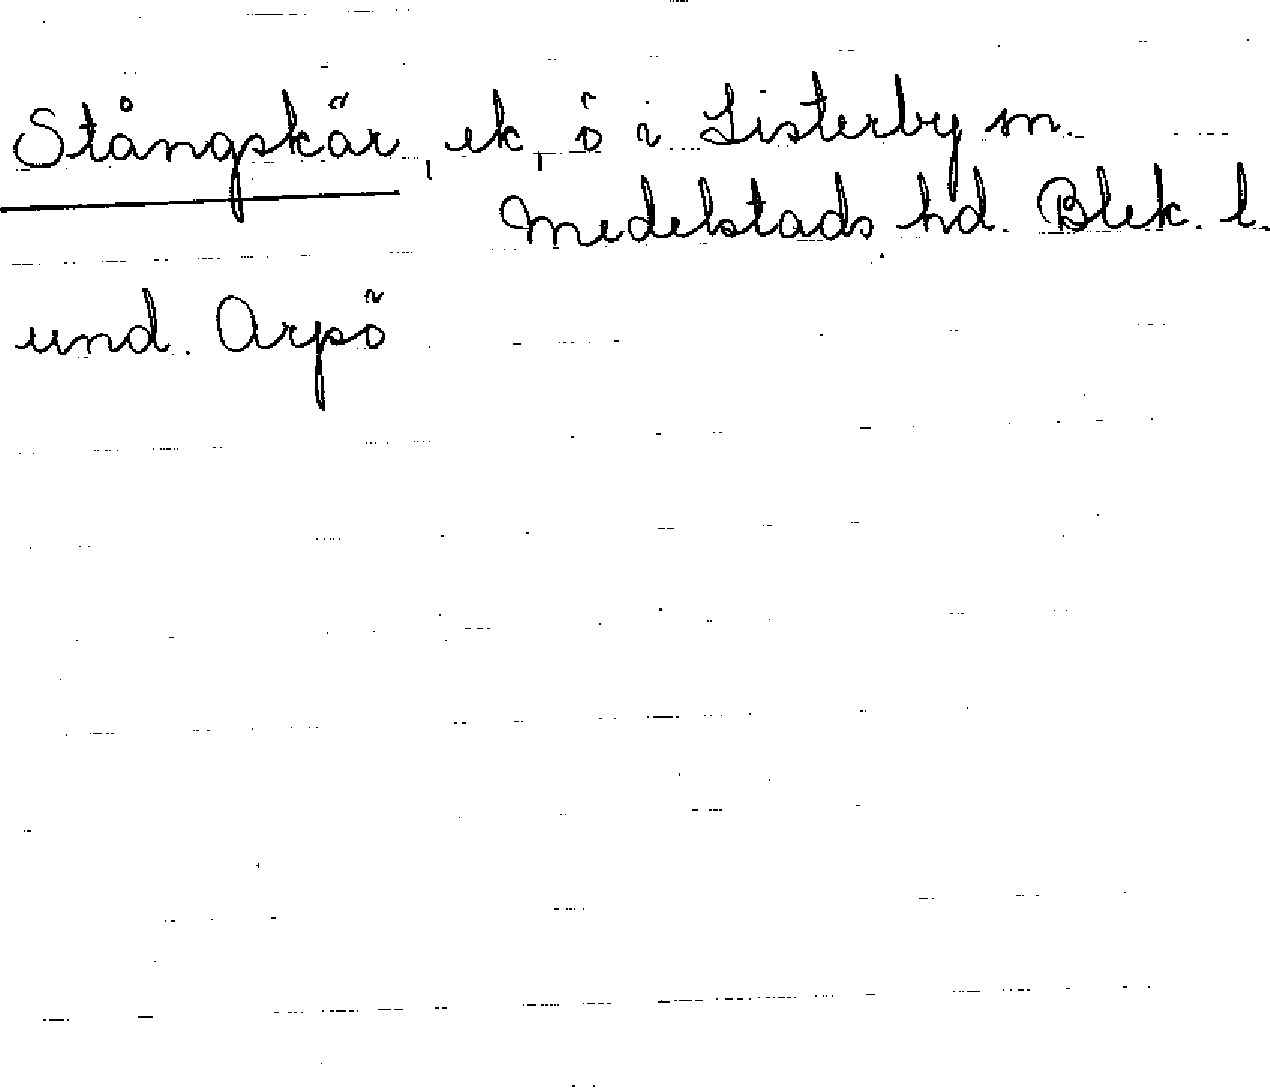 Stångskär, ek, ö i Listerby sn.
Medelstads hd. Blek. l.
und. Arpö